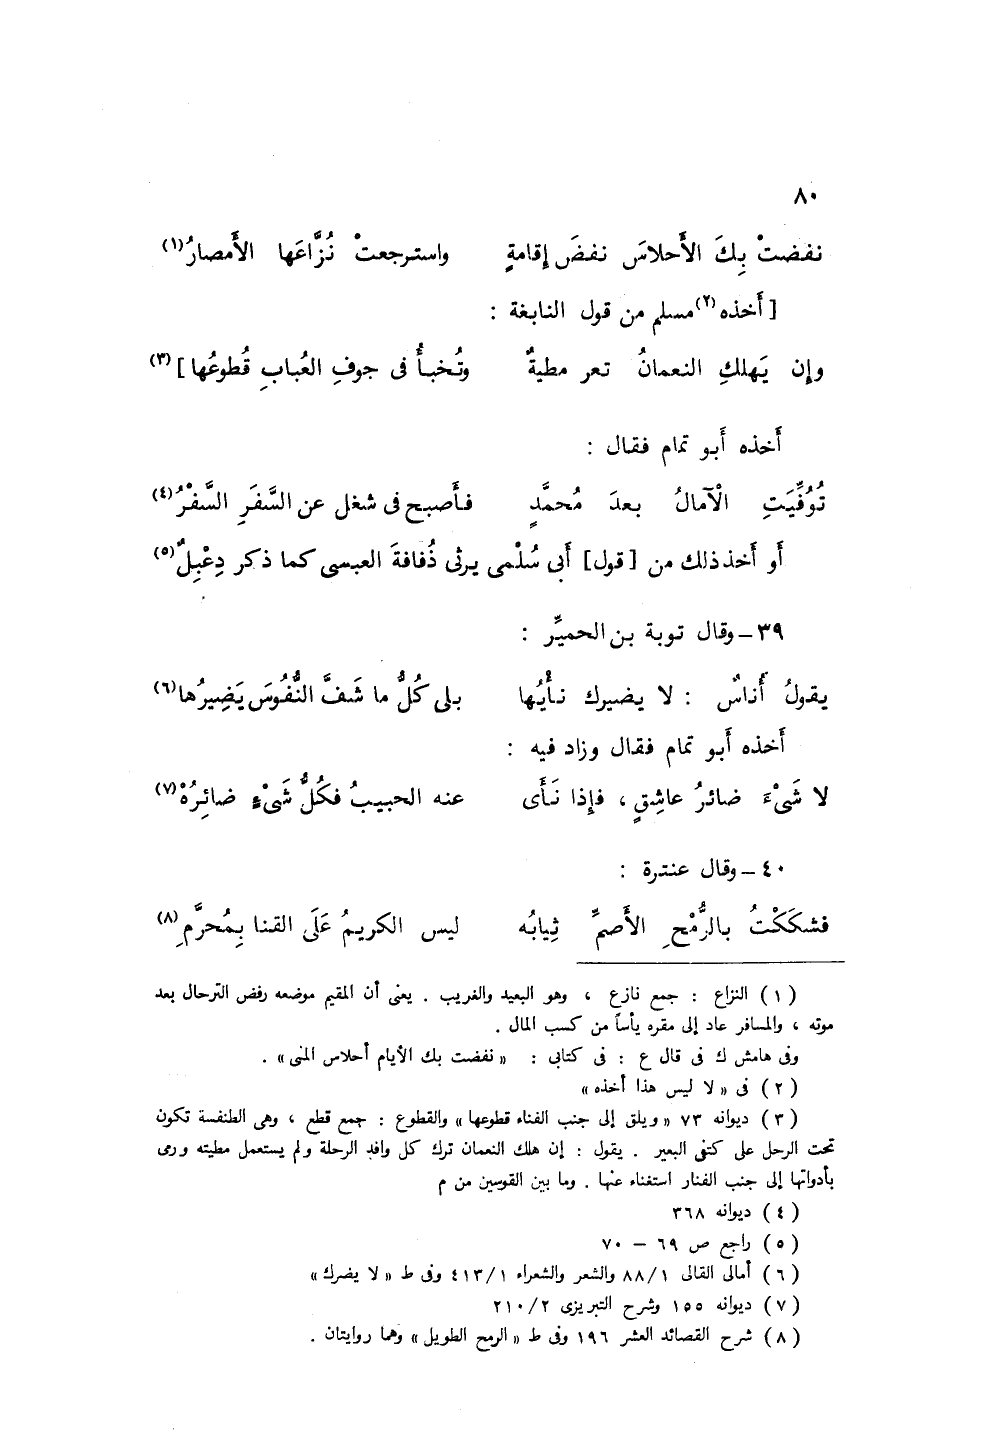 ٨٠
نفضتْ بِكَ الأَحلاسَ نفضَ إقامةٍ واسترجعتْ نُزَّاعَها الأَمصارُ(١)
[ أَخذه(٢) مسلم من قول النابغة :
وإن يَهلكِ النعمانُ تعر مطيةٌ وتُخبأُ فى جوفِ العُبابِ قُطوعُها ](٣)
أَخذه أَبو تمام فقال :
تُوُفِّيَتِ الْآمالُ بعدَ مُحمَّدٍ فأَصبح فى شغل عن السَّفَرِ السَّفْرُ(٤)
أَو أَخذ ذلك من [ قول ] أَبى سُلْمى يرثى ذُفافةَ العبسى كما ذكر دِعْبِلٌ(٥)
٣٩ – وقال توبة بن الحميِّر :
يقولُ أُناسٌ : لا يضيرك نأْيُها بلى كُلُّ ما شَفَّ النُّفُوسَ يَضِيرُها(٦)
أَخذه أَبو تمام فقال وزاد فيه :
لا شَىْءَ ضائرُ عاشِقٍ ، فإِذا نَأَى عنه الحبيبُ فكُلُّ شَىْءٍ ضائِرُهْ(٧)
٤٠ – وقال عنترة :
فشكَكْتُ بالرُّمْحِ الأَصمِّ ثِيابُه ليس الكريمُ عَلَى القنا بِمُحرَّمِ(٨)
( ١ ) النزاع : جمع نازع ، وهو البعيد والغريب . يعنى أن المقيم موضعه رفض الترحال بعد
موته ، والمسافر عاد إلى مقره يأساً من كسب المال .
وفى هامش ك فى قال ع : فى كتابى : « نفضت بك الأيام أحلاس المنى » .
( ٢ ) فى « لا ليس هذا أخذه »
( ٣ ) ديوانه ٧٣ « ويلق إلى جنب الفناء قطوعها » والقطوع : جمع قطع ، وهى الطنفسة تكون
تحت الرحل على كتفى البعير . يقول : إن هلك النعمان ترك كل وافد الرحلة ولم يستعمل مطيته ورمى
بأدواتها إلى جنب الفنار استغناء عنها . وما بين القوسين من م
( ٤ ) ديوانه ٣٦٨
( ٥ ) راجع ص ٦٩ – ٧٠
( ٦ ) أمالى القالى ٨٨/١ والشعر والشعراء ٤١٣/١ وفى ط « لا يضرك »
( ٧ ) ديوانه ١٥٥ وشرح التبريزى ٢١٠/٢
( ٨ ) شرح القصائد العشر ١٩٦ وفى ط « الرمح الطويل » وهما روايتان .